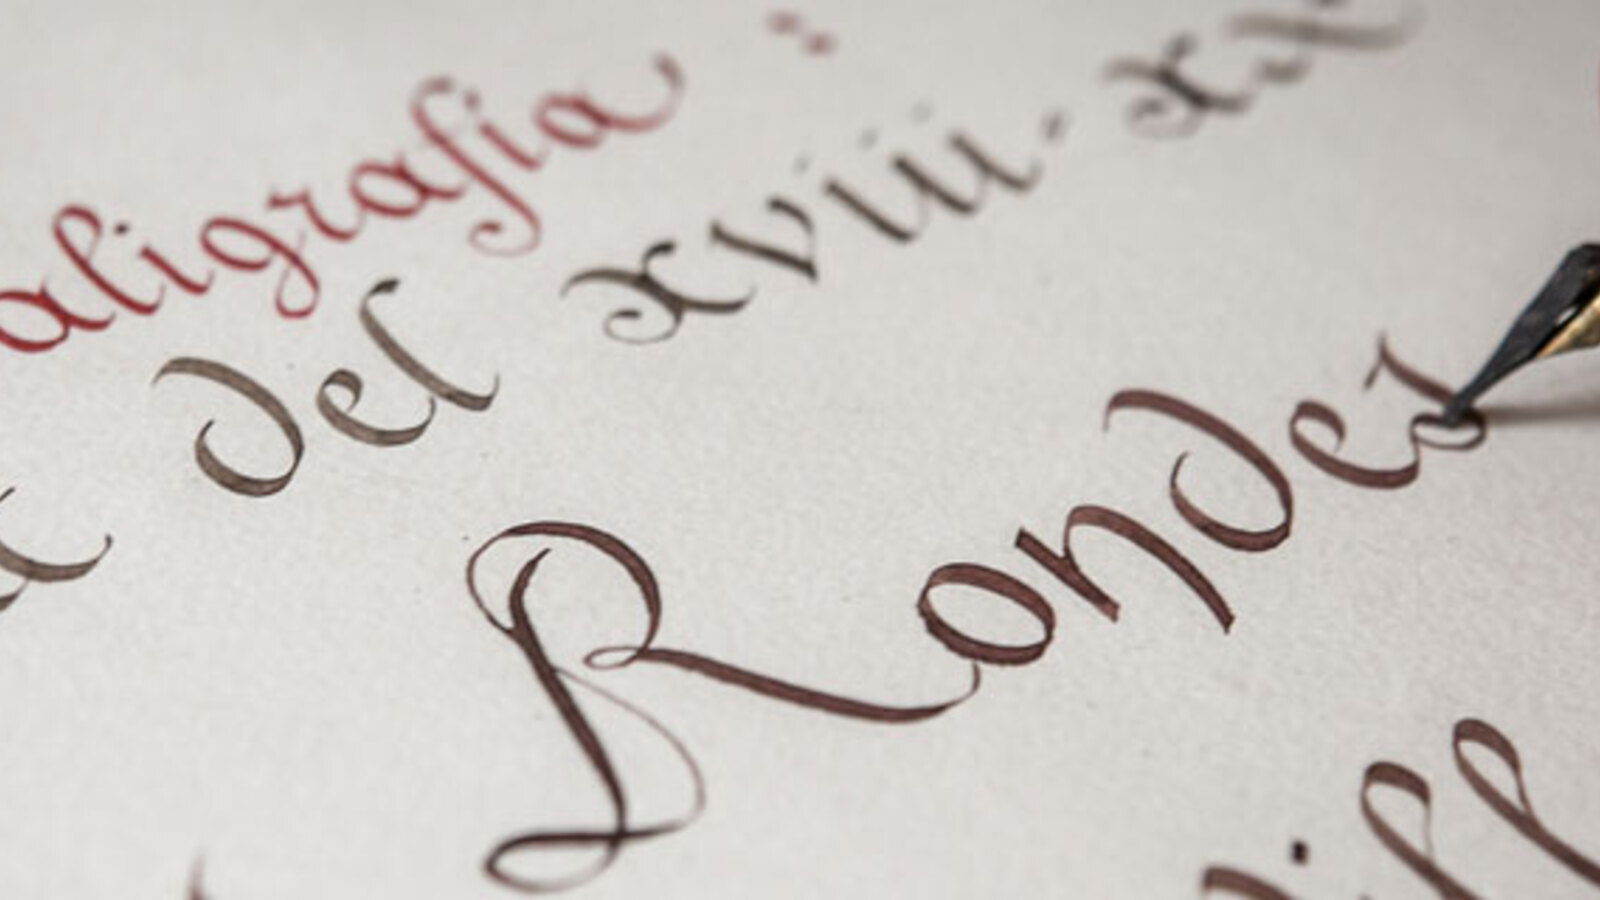 aligrafia :
del xviii - xx
Rondes
ill